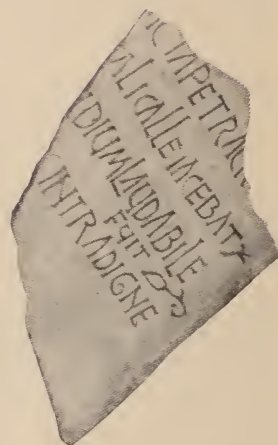 CIAPETRACV
ALICALLEIACEBAT
DIUMLAUDABILE
FUIT
INTRADIGNE